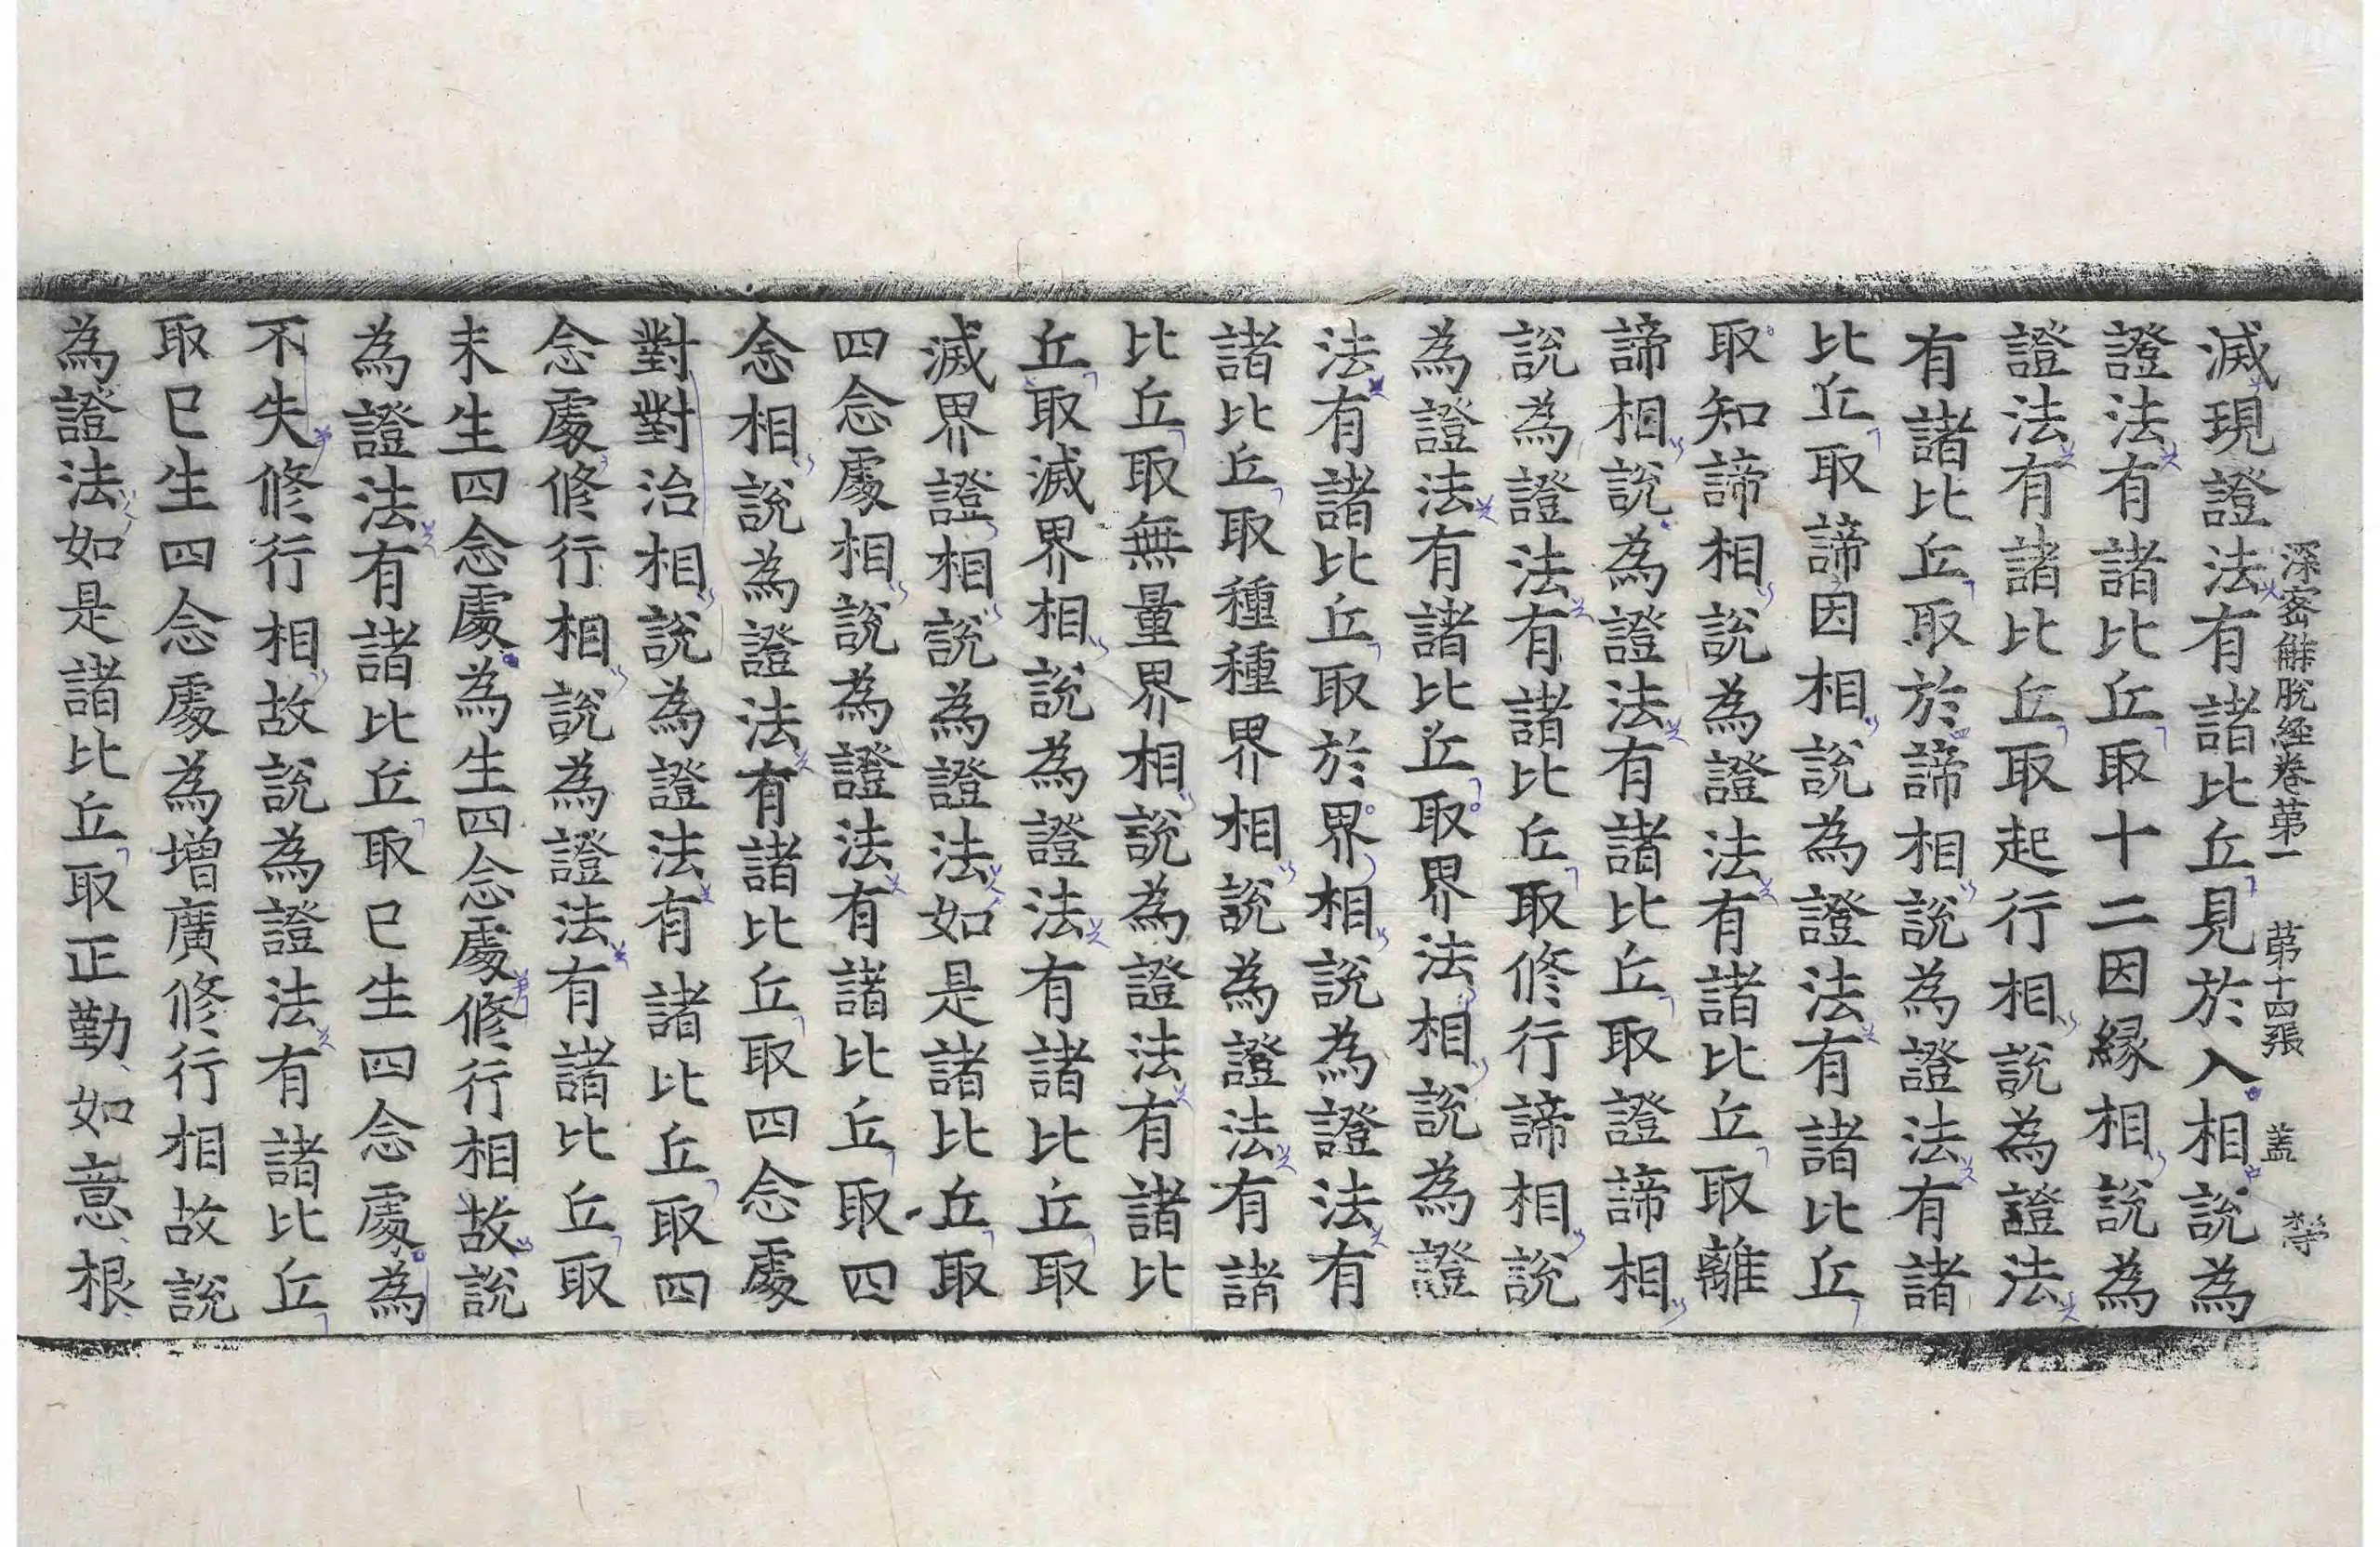 深密解脫經卷第一　第十四張　盖　㭓
滅現證法有諸比丘見於入相說為
證法有諸比丘取十二因緣相說為
證法有諸比丘取起行相說為證法
有諸比丘取於諦相說為證法有諸
比丘取諦因相說為證法有諸比丘
取知諦相說為證法有諸比丘取離
諦相說為證法有諸比丘取證諦相
說為證法有諸比丘取修行諦相說
為證法有諸比丘取界法相說為證
法有諸比丘取於界相說為證法有
諸比丘取種種界相說為證法有諸
比丘取無量界相說為證法有諸比
丘取滅界相說為證法有諸比丘取
滅界證相說為證法如是諸比丘取
四念處相說為證法有諸比丘取四
念相說為證法有諸比丘取四念處
對對治相說為證法有諸比丘取四
念處修行相說為證法有諸比丘取
未生四念處為生四念處修行相故說
為證法有諸比丘取已生四念處為
不失修行相故說為證法有諸比丘
取已生四念處為增廣修行相故說
為證法如是諸比丘取正勤如意根